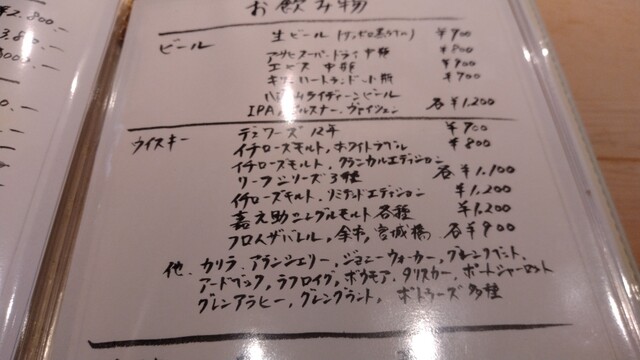 ¥2,800.-
お飲み物
ビール 生ビール(サッポロ黒ラベル) ¥900
アサヒスーパードライ中瓶 ¥800
エビス 中瓶 ¥900
キリンハートランド小瓶 ¥700
ライディーンビール
IPA、ピルスナー、ヴァイツェン 各¥1,200
ウイスキー デュワーズ 12年 ¥700
イチローズモルト、ホワイトラベル ¥800
イチローズモルト、クラシカルエディション
リーフシリーズ3種 各¥1,100
イチローズモルト、リミテッドエディション ¥1,200
嘉之助シングルモルト各種 ¥1,200
フロムザバレル、余市、宮城峡 各¥900
他、カリラ、アランシェリー、ジョニーウォーカー、
アードベック、ラフロイグ、ボウモア、タリスカー、ポートシャーロット
グレンアラヒー、グレングラント、ボトラーズ多種